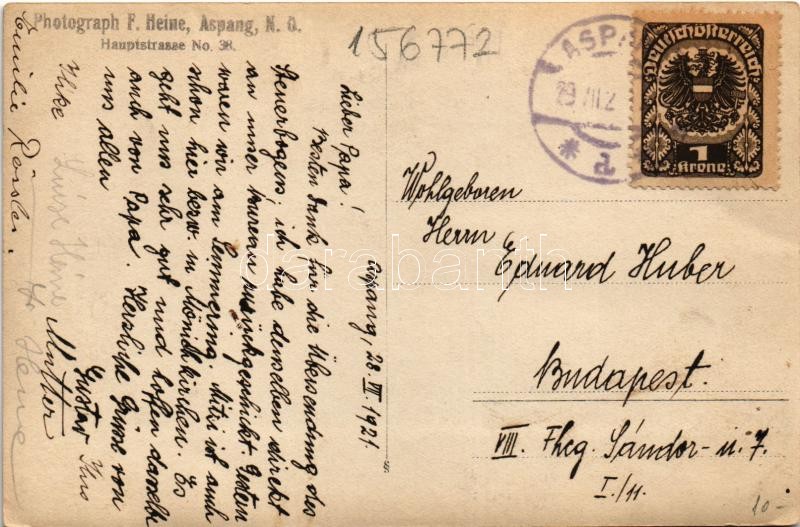 Photograph F. Heine, Aspang, N. Ö.
Hauptstrasse No. 38.
156772
ASPA
29 VII 2
Deutschösterreich
1
Krone
Aspang, 28. VII 1921
Lieber Papa!
Besten Dank für die Übersendung des
Steuerbogens; ich habe denselben direkt
an unser Bureau zurückgeschickt. Gestern
waren wir am Semmering. Mitzi ist auch
schon hier bezw. in Mönichkirchen. Es
geht uns sehr gut und hoffen dasselbe
auch von Papa. Herzliche Grüsse von
uns allen
Gustav
Mutter
Ilka
Luise Heine
Heine
Emilie
Wohlgeboren
Herrn
Eduard Huber
Budapest.
VIII. Fhcg. Sándor-u. 7.
I./11.
10-
darabanth